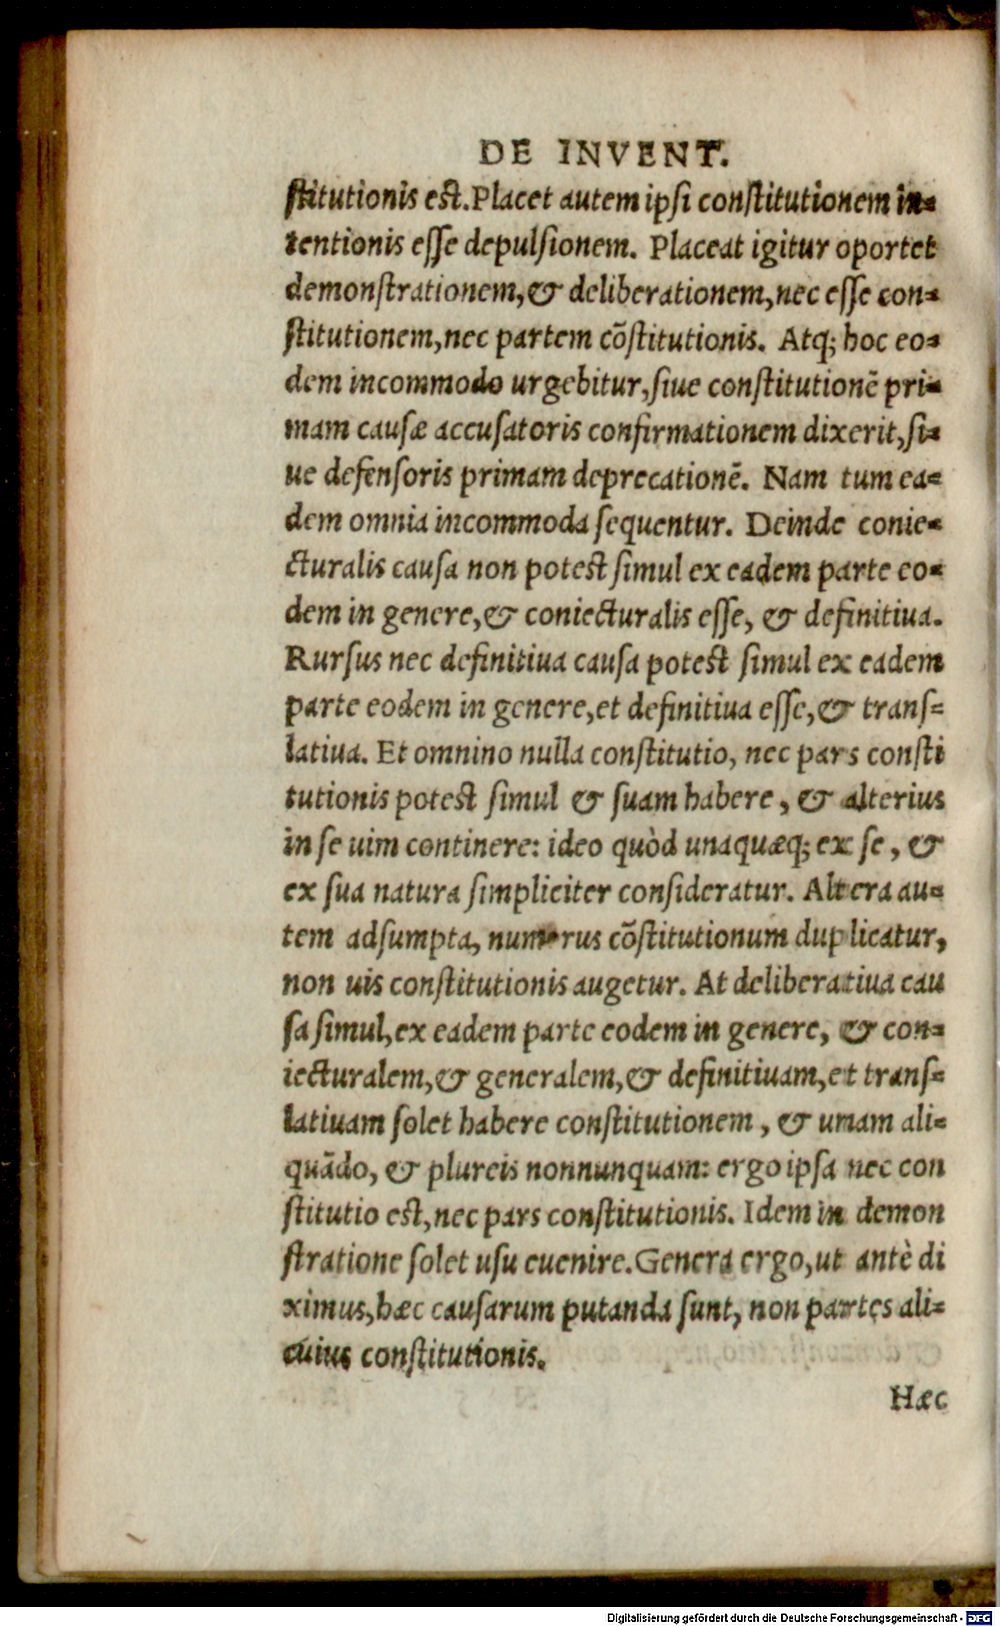 DE INVENT.
ſtitutionis est. Placet autem ipſi conſtitutionem in-
tentionis eſſe depulſionem. Placeat igitur oportet
demonſtrationem, & deliberationem, nec eſſe con-
ſtitutionem, nec partem cõſtitutionis. Atq; hoc eo-
dem incommodo urgebitur, ſiue conſtitutionẽ pri-
mam cauſæ accuſatoris confirmationem dixerit, ſi-
ue defenſoris primam deprecationẽ. Nam tum ea-
dem omnia incommoda ſequentur. Deinde conie-
cturalis cauſa non potest ſimul ex eadem parte eo-
dem in genere, & coniecturalis eſſe, & definitiua.
Rurſus nec definitiua cauſa potest ſimul ex eadem
parte eodem in genere, et definitiua eſſe, & tranſ-
latiua. Et omnino nulla conſtitutio, nec pars conſti
tutionis potest ſimul & ſuam habere, & alterius
in ſe uim continere: ideo quòd unaquæq; ex ſe, &
ex ſua natura ſimpliciter conſideratur. Altera au-
tem adſumpta, numerus cõſtitutionum duplicatur,
non uis conſtitutionis augetur. At deliberatiua cau
ſa ſimul, ex eadem parte eodem in genere, & con-
iecturalem, & generalem, & definitiuam, et tranſ-
latiuam ſolet habere conſtitutionem, & unam ali-
quãdo, & plureis nonnunquam: ergo ipſa nec con
ſtitutio est, nec pars conſtitutionis. Idem in demon
ſtratione ſolet uſu euenire. Genera ergo, ut antè di
ximus, hæc cauſarum putanda ſunt, non partes ali-
cuius conſtitutionis.
Hæc
Digitalisierung gefördert durch die Deutsche Forschungsgemeinschaft - DFG